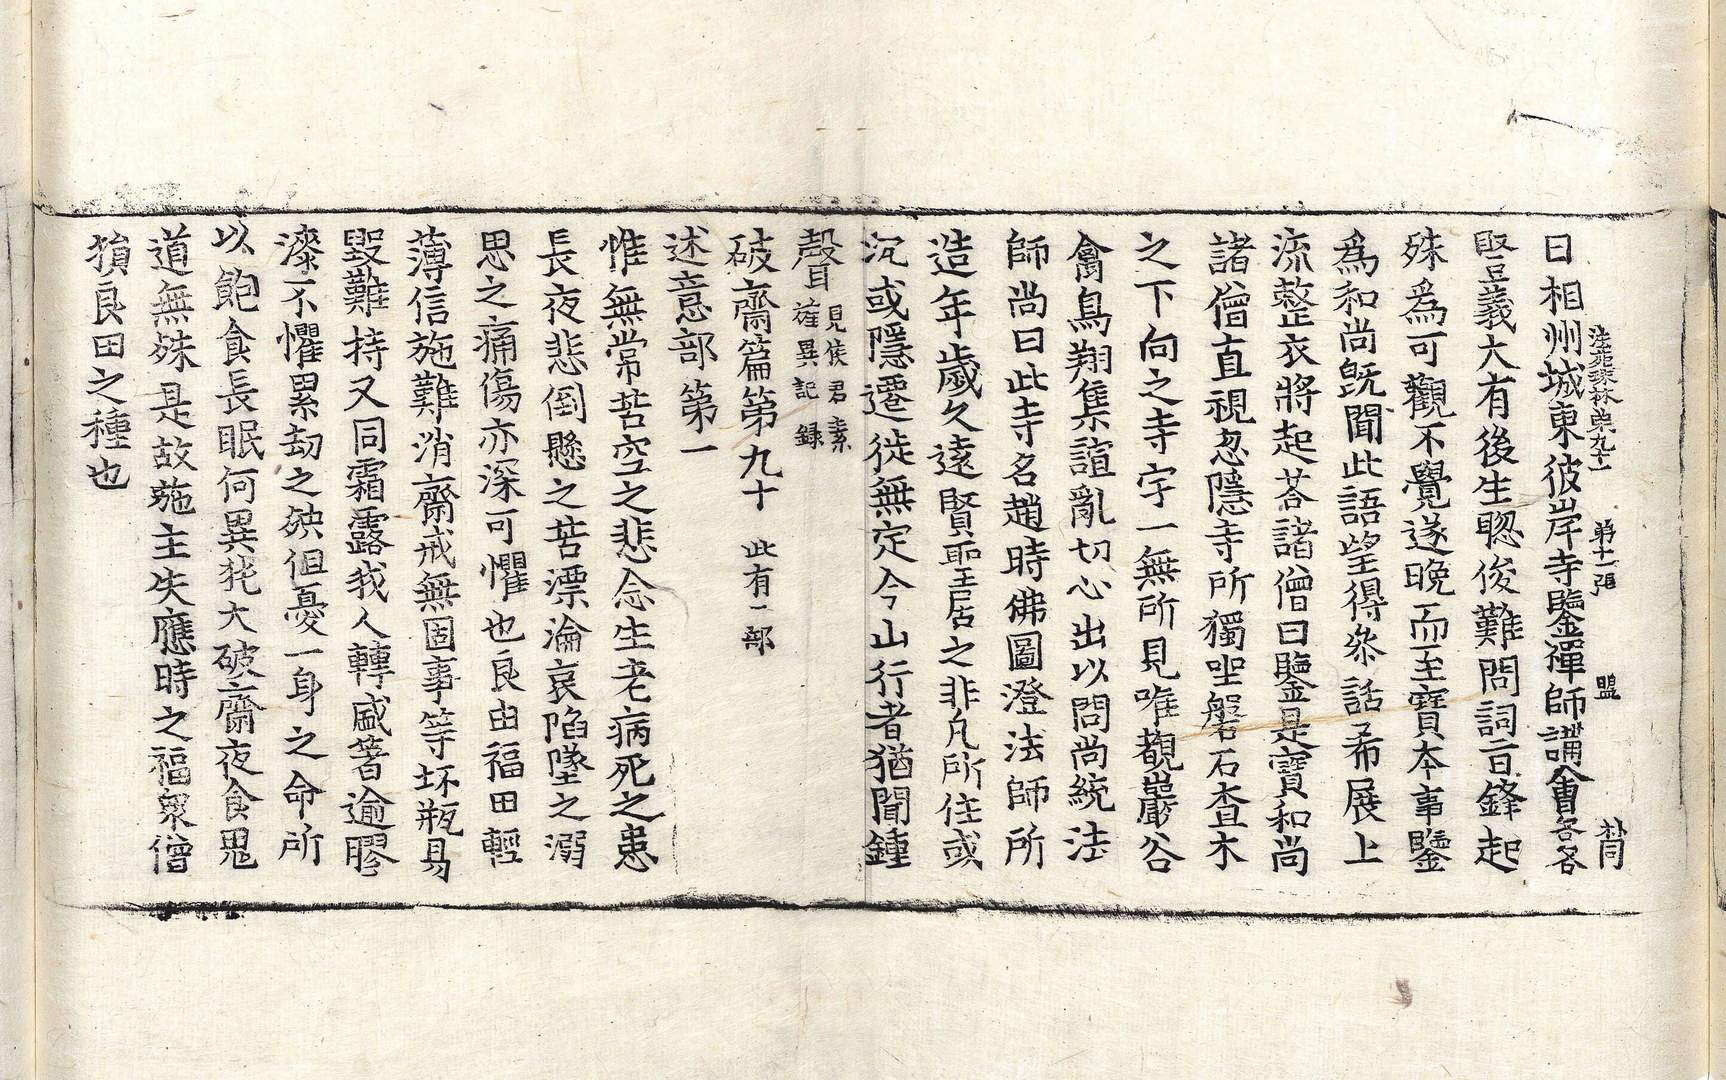 法苑珠林第九十一 第十一張 盟 朴同
日相州城東彼岸寺鑒禪師講會各各
竪義大有後生聦俊難問詞旨鋒起
殊爲可觀不覺遂晚而至寶本事鑒
爲和尚旣聞此語望得叅話希展上
流整衣將起荅諸僧曰鑒是寶和尚
諸僧直視忽隱寺所獨坐磐石查木
之下向之寺宇一無所見唯覩巖谷
禽鳥翔集諠亂切心出以問尚統法
師尚曰此寺名趙時佛圖澄法師所
造年歲久遠賢聖居之非凡所住或
沉或隱遷徙無定今山行者猶聞鍾
聲 見侯君素旌異記錄
破齋篇第九十 此有一部
述意部第一
惟無常苦空之悲念生老病死之患
長夜悲倒懸之苦漂淪哀陷墜之溺
思之痛傷亦深可懼也良由福田輕
薄信施難消齋戒無固事等坏瓶易
毀難持又同霜露我人轉盛著逾膠
漆不懼累劫之殃但憂一身之命所
以飽食長眠何異犹犬破齋夜食鬼
道無殊是故施主失應時之福衆僧
損良田之種也